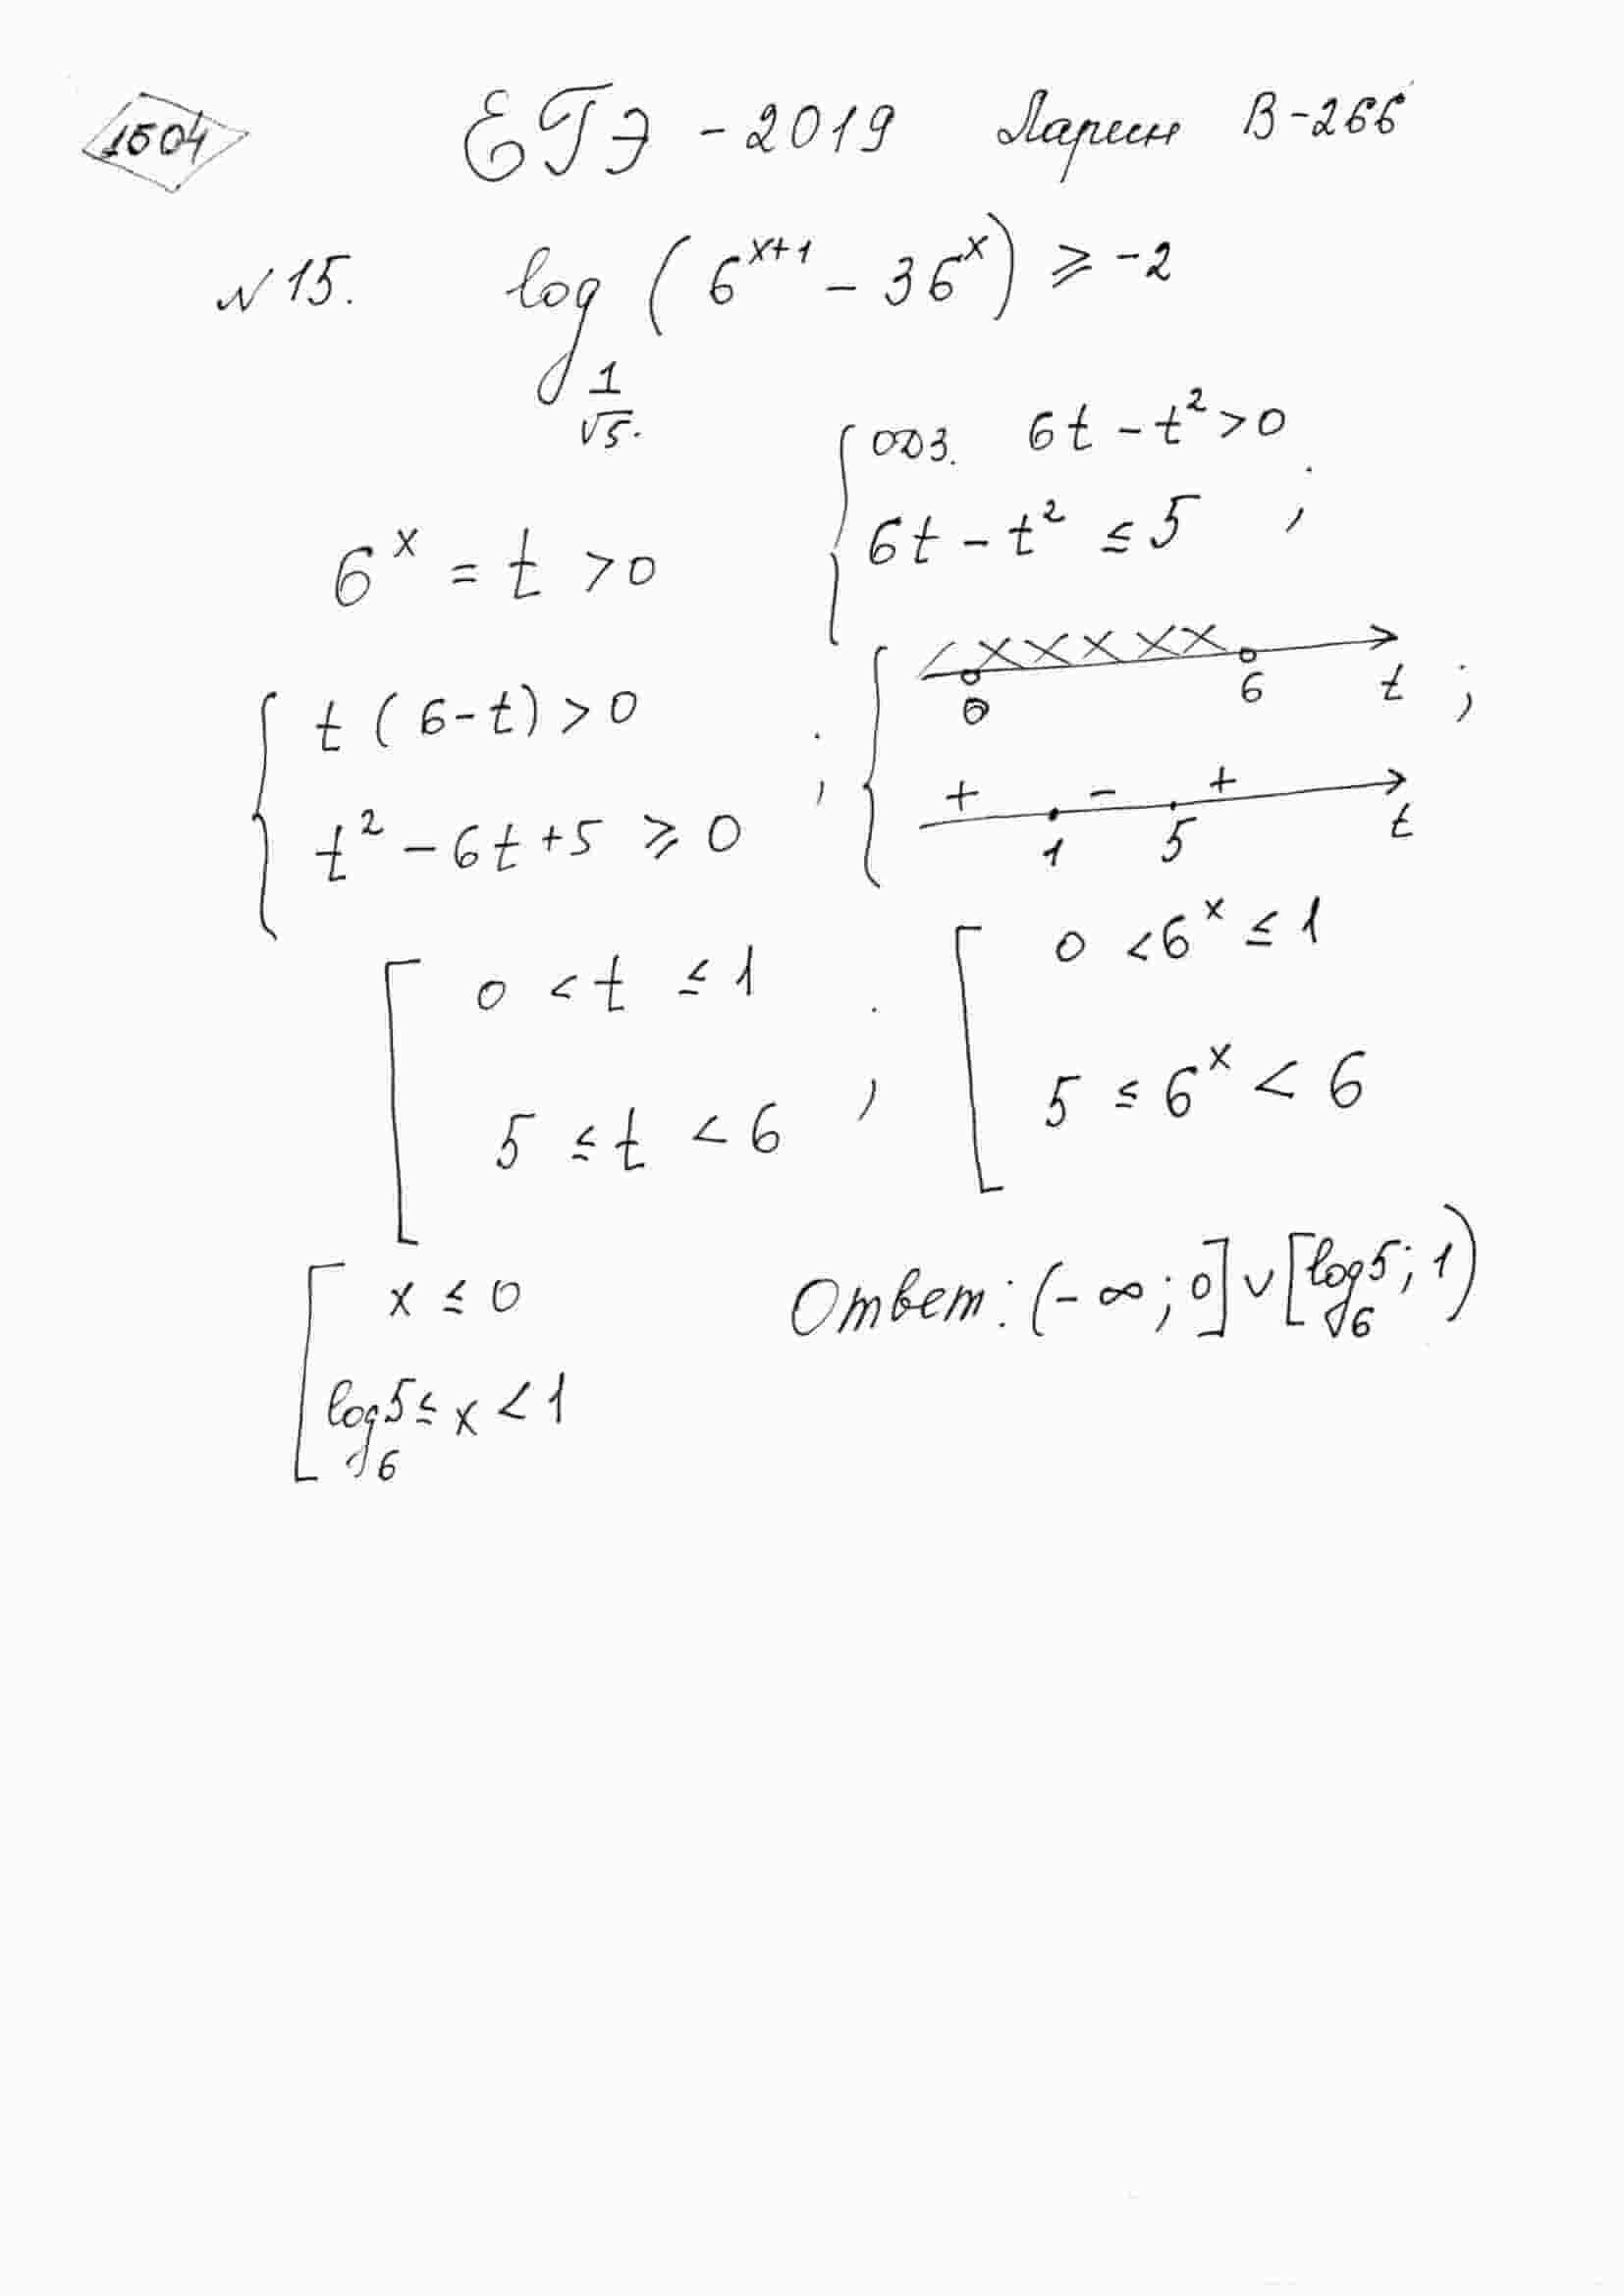 1504
ЕГЭ - 2019 Ларин В-266
№15. log_{1/√5} (6^{x+1} - 36^x) ⩾ -2
ОДЗ. 6t - t² > 0
6t - t² ≤ 5 ;
6^x = t > 0
t (6-t) > 0
t² - 6t + 5 ⩾ 0 ;
0 6 t ;
+ - +
1 5 t
0 < t ≤ 1
5 ≤ t < 6 ;
0 < 6^x ≤ 1
5 ≤ 6^x < 6
x ≤ 0
log_6 5 ≤ x < 1
Ответ: (-∞; 0] ∪ [log_6 5; 1)